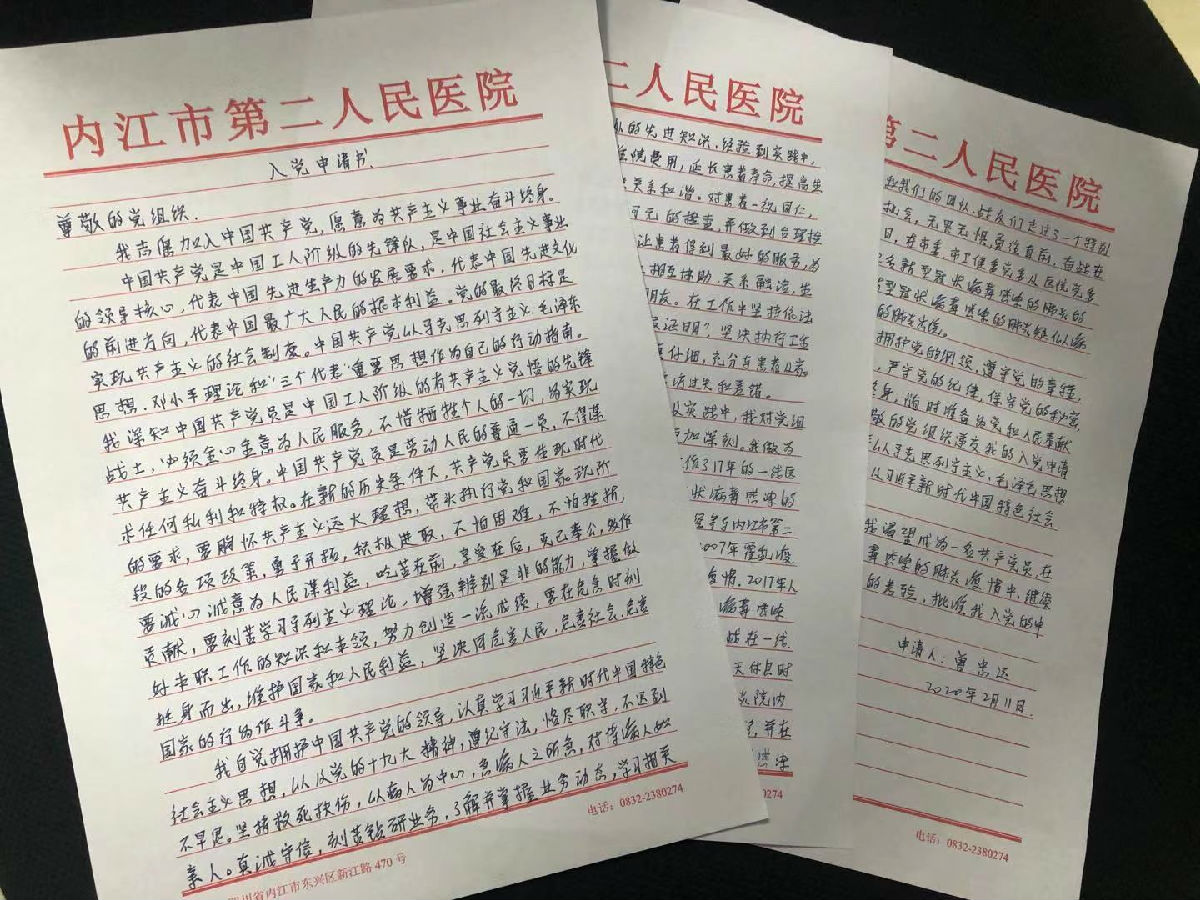 内江市第二人民医院
入党申请书.
尊敬的党组织.
我志愿加入中国共产党,愿意为共产主义事业奋斗终身。
中国共产党是中国工人阶级的先锋队,是中国社会主义事业
的领导核心,代表中国先进生产力的发展要求,代表中国先进文化
的前进方向,代表中国最广大人民的根本利益。党的最终目标是
实现共产主义的社会制度。中国共产党以马克思列宁主义、毛泽东
思想、邓小平理论和“三个代表”重要思想作为自己的行动指南。
我深知中国共产党员是中国工人阶级的有共产主义觉悟的先锋
战士,必须全心全意为人民服务,不惜牺牲个人的一切,为实现
共产主义奋斗终身。中国共产党员是劳动人民的普通一员,不得谋
求任何私利和特权。在新的历史条件下,共产党员要体现时代
的要求,要胸怀共产主义远大理想,带头执行党和国家现阶
段的各项政策,勇于开拓,积极进取,不怕困难,不怕挫折,
要诚心诚意为人民谋利益,吃苦在前,享受在后,克己奉公,多作
贡献,要刻苦学习马列主义理论,增强辨别是非的能力,掌握做
好本职工作的知识和本领,努力创造一流成绩,要在危急时刻
挺身而出,维护国家和人民利益,坚决同危害人民,危害社会,危害
国家的行为作斗争。
我自觉拥护中国共产党的领导,认真学习习近平新时代中国特色
社会主义思想,以及党的十九大精神,遵纪守法,恪尽职守,不迟到
不早退。坚持救死扶伤,以病人为中心,急病人之所急,对待病人如
亲人。真诚守信,刻苦钻研业务,了解并掌握业务动态,学习相关
电话:0832-2380274
川省内江市东兴区新江路470号
二人民医院
的先进知识、经验到实践中,
费用,延长患者寿命,提高生
关系和谐。对患者一视同仁,
的检查,再做到合理检
让患者得到最好的服务,为
相互协助,关系融洽,
朋友。在工作中坚持依法
坚决执行工作
仔细,充分与患者
过失和差错。
实践中,我对党组
加深刻。我做为
作了17年的一线医
状病毒感染的
与内江市第二
2007年霍乱疫
疫情,2017年人
病毒感染
战在一线.
天休息时
院内
,并在
0274
第二人民医院
我们的团队,战友们走过了一个特别
无畏无惧,勇往直前,奋战在
日,在市委,市卫健委党委及医院党委
新型冠状病毒感染的肺炎的
型冠状病毒感染的肺炎疑似病
的肺炎患
拥护党的纲领,遵守党的章程,
,严守党的纪律,保守党的秘密,
身,随时准备为党和人民奉献
敬的党组织考虑我的入党申请
以马克思列宁主义、毛泽东思想
及习近平新时代中国特色社会
我渴望成为一名共产党员,在
毒感染的肺炎疫情中,继续
的考验,批准我入党的申
申请人:曾忠运
2020年2月11日.
电话:0832-2380274